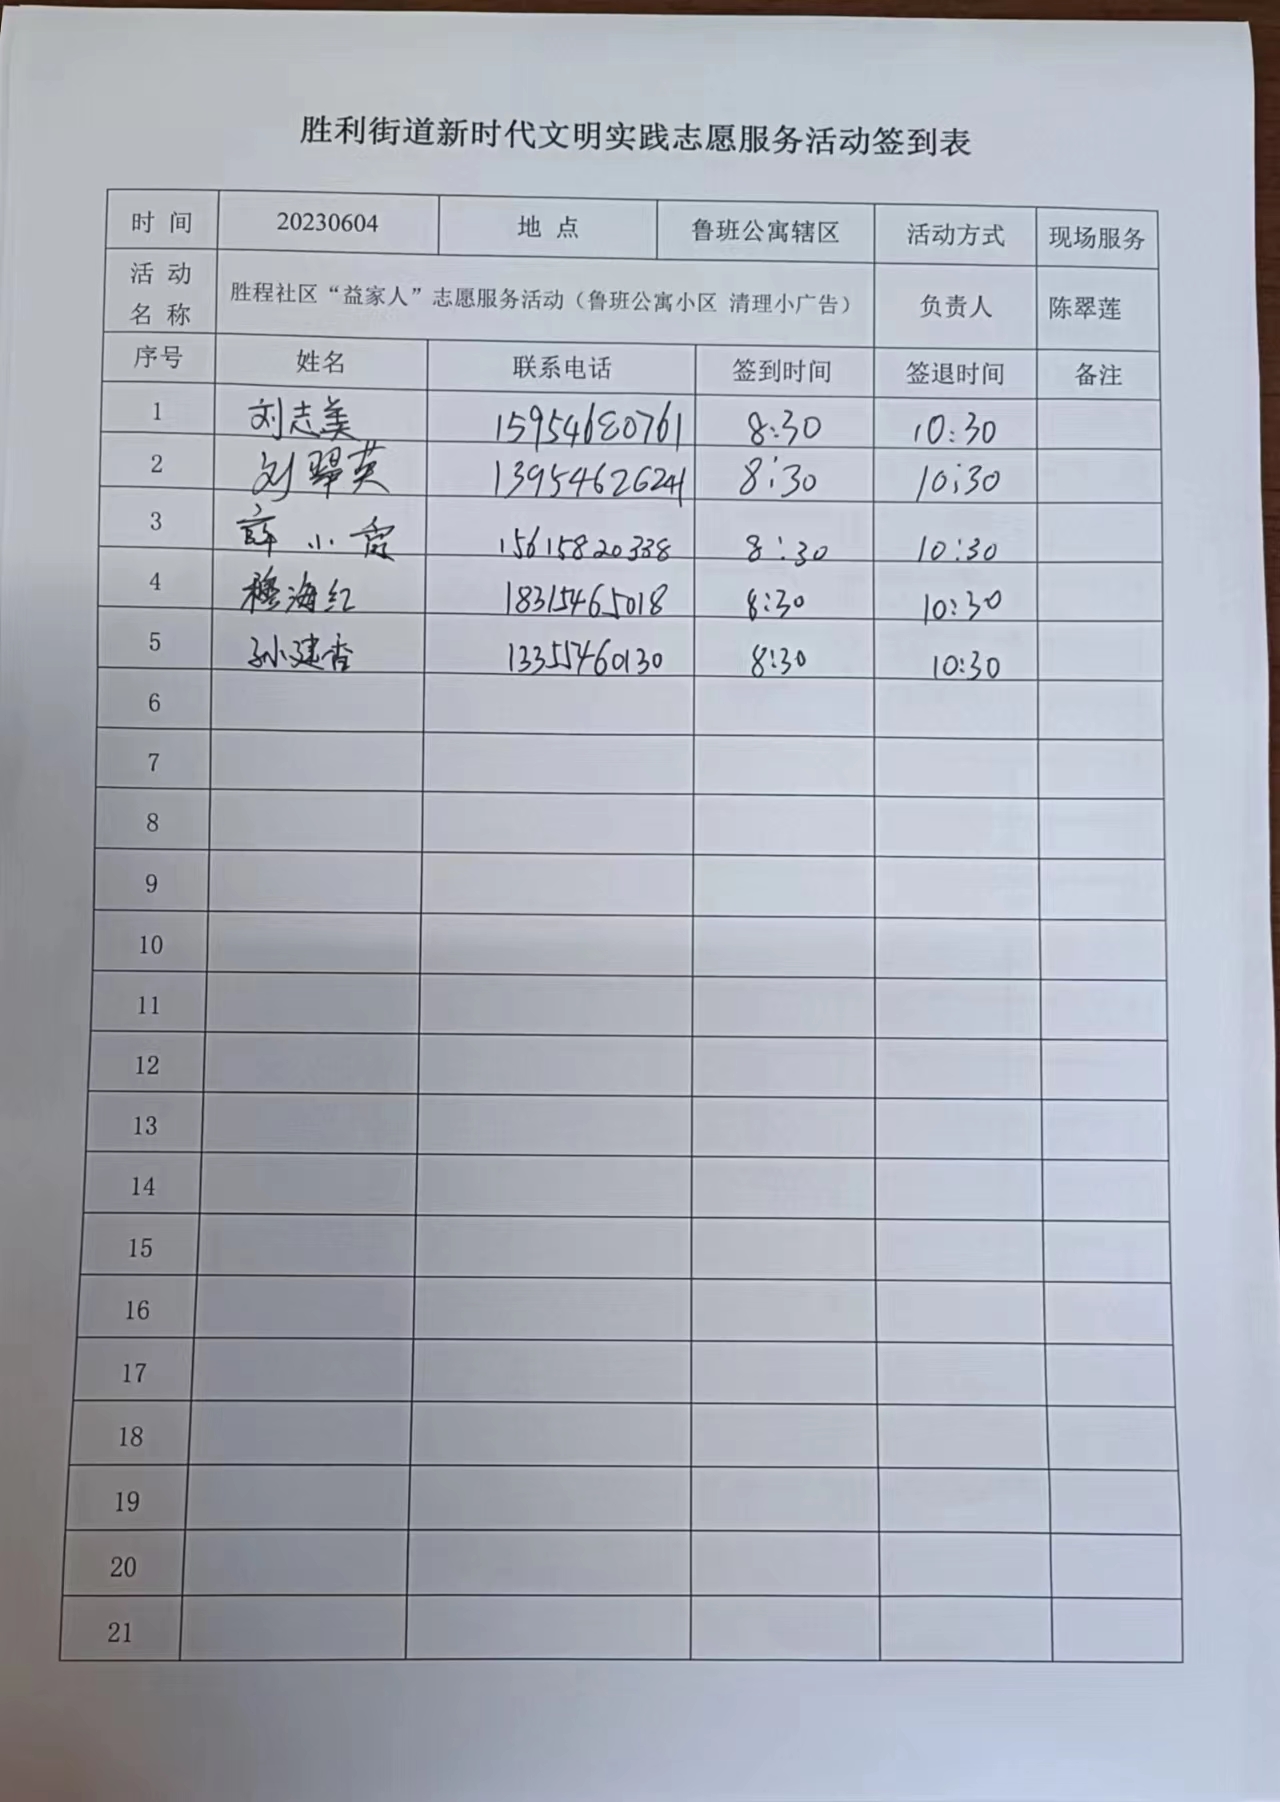 胜利街道新时代文明实践志愿服务活动签到表
时 间 20230604 地 点 鲁班公寓辖区 活动方式 现场服务
活 动 名 称 胜程社区“益家人”志愿服务活动（鲁班公寓小区 清理小广告） 负责人 陈翠莲
序号 姓名 联系电话 签到时间 签退时间 备注
1 刘志美 15954680761 8:30 10:30
2 刘翠英 13954626241 8:30 10:30
3 薛小霞 15615820338 8:30 10:30
4 穆海红 18315465018 8:30 10:30
5 孙建香 13355460130 8:30 10:30
6
7
8
9
10
11
12
13
14
15
16
17
18
19
20
21